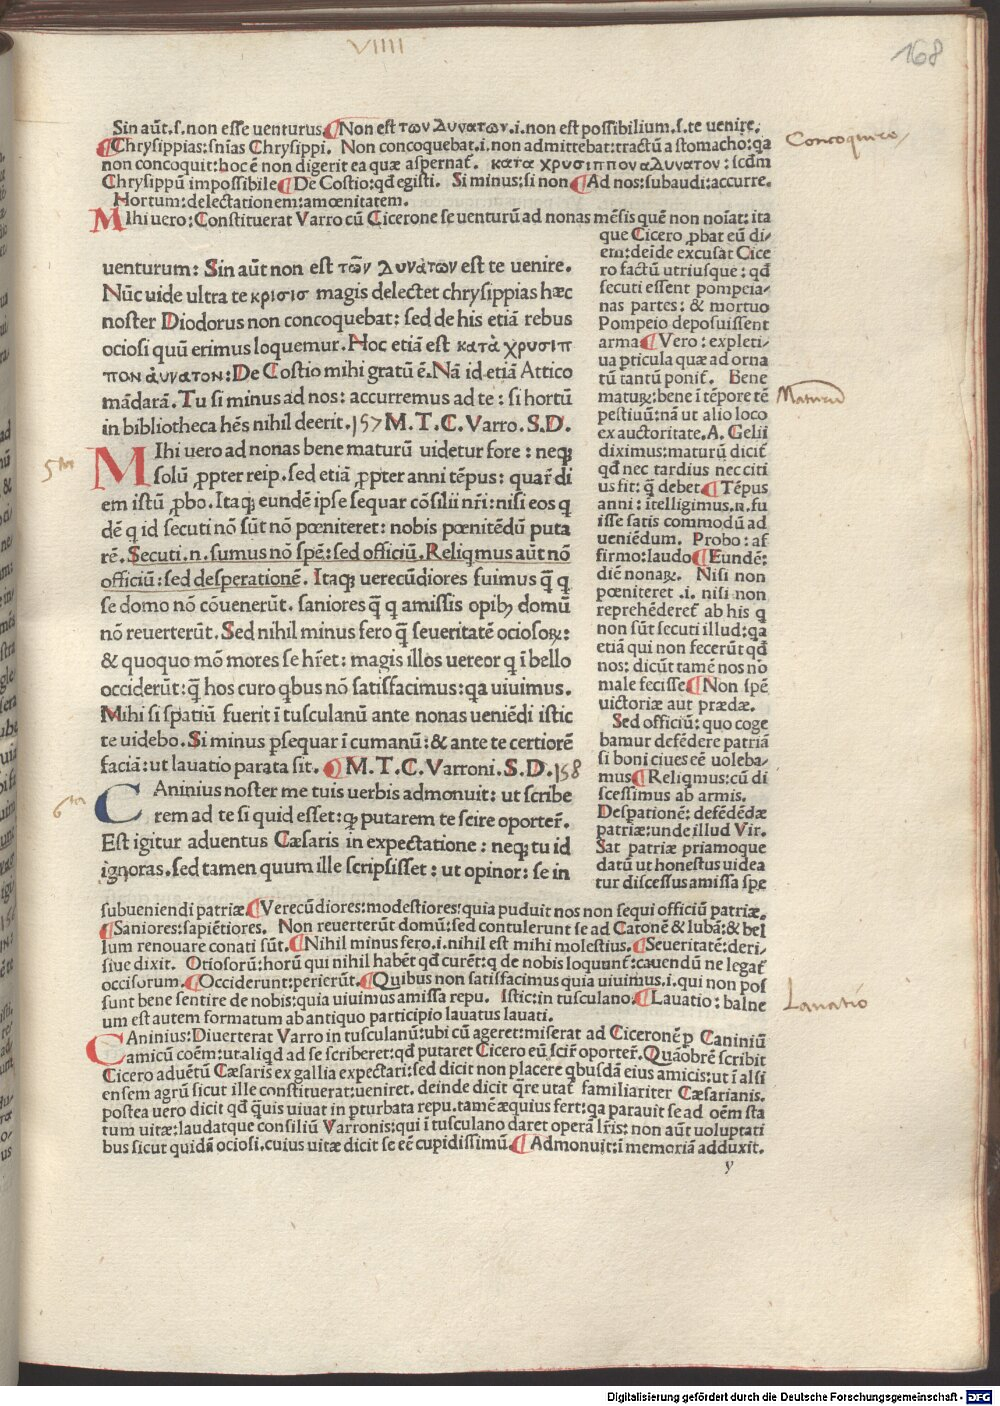 VIIII
168
Sin aūt.ſ.non eſſe uenturus.¶Non eſt των Δυνατων.i.non eſt poſſibilium.ſ.te uenire.
¶Chryſippias:ſnīas Chryſippi. Non concoquebat.i.non admittebat:tractū a ſtomacho:qa
non concoquit:hoc ē non digerit ea quæ aſpernat̃. κατα χρυσιππον αδυνατον: ſcđm
Chryſippū impoſſibile¶De Coſtio:qđ egiſti. Si minus:ſi non¶Ad nos:ſubaudi:accurre.
Hortum:delectationem:amœnitatem.
MIhi uero:Conſtituerat Varro cū Cicerone ſe uenturū ad nonas mēſis quē non noīat:ita
que Cicero ꝓbat eū di⸗
em:deide excuſat Cice
ro factū utriuſque: qđ
ſecuti eſſent pompeia⸗
nas partes: & mortuo
Pompeio depoſuiſſent
arma¶Vero:expleti⸗
ua pticula quæ ad orna
tū tantū ponit̃. Bene
maturꝝ:bene ī tēpore tē
peſtiuū:nā ut alio loco
ex auctoritate.A.Gelii
diximus:maturū dicit̃
qđ nec tardius nec citi
us fit: q̄ debet¶Tēpus
anni: itelligimus.n.fu
iſſe ſatis commodū ad
ueniēdum. Probo: af
firmo:laudo¶Eundē:
diē nonaꝝ. Niſi non
pœniteret .i. niſi non
reprehēderet̃ ab his q
non ſūt ſecuti illud:qa
etiā qui non fecerūt qđ
nos: dicūt tamē nos nō
male feciſſe¶Non ſpē
uictoriæ aut prædæ.
Sed officiū: quo coge
bamur defēdere patriā
ſi boni ciues eē uoleba⸗
mus¶Reliqmus:cū di
ſceſſimus ab armis.
Deſpationē: defēdēdæ
patriæ:unde illud Vir.
Sat patriæ priamoque
datū ut honeſtus uidea
tur diſceſſus amiſſa ſpe
uenturum: Sin aūt non eſt τῶν Δυνάτων eſt te uenire.
Nūc uide ultra te κρισισ magis delectet chryſippias hæc
noſter Diodorus non concoquebat: ſed de his etiā rebus
ocioſi quū erimus loquemur. Hoc etiā eſt κατὰ χρυσιπ
πον ἀυνατον:De Coſtio mihi gratū ē. Nā id etiā Attico
mādarā. Tu ſi minus ad nos: accurremus ad te: ſi hortū
in bibliotheca hēs nihil deerit. 157 M.T.C.Varro.S.D.
MIhi uero ad nonas bene maturū uidetur fore: neqꝫ
ſolū ꝓpter reip. ſed etiā ꝓpter anni tēpus: quar̃ di
em iſtū ꝓbo. Itaqꝫ eundē ipſe ſequar cōſilii nr̄i:niſi eos q
dē q id ſecuti nō ſūt nō pœniteret: nobis pœnitēdū puta
rē. Secuti.n.ſumus nō ſpē:ſed officiū. Reliqmus aūt nō
officiū: ſed deſperationē. Itaqꝫ uerecūdiores fuimus q̄ q
ſe domo nō cōuenerūt. ſaniores q̄ q amiſſis opibꝫ domū
nō reuerterūt. Sed nihil minus fero q̄ ſeueritatē ocioſoꝝ:
& quoquo mō mores ſe hr̄et: magis illos uereor q ī bello
occiderūt: q̄ hos curo qbus nō ſatiſfacimus:qa uiuimus.
Mihi ſi ſpatiū fuerit ī tuſculanū ante nonas ueniēdi iſtic
te uidebo. Si minus pſequar ī cumanū: & ante te certiorē
faciā: ut lauatio parata ſit. ¶ M.T.C. Varroni. S.D. 158
CAninius noſter me tuis uerbis admonuit: ut ſcribe
rem ad te ſi quid eſſet: qꝫ putarem te ſcire oporter̃.
Eſt igitur aduentus Cæſaris in expectatione: neqꝫ tu id
ignoras. ſed tamen quum ille ſcripſiſſet: ut opinor: ſe in
ſubueniendi patriæ¶Verecūdiores:modeſtiores:quia puduit nos non ſequi officiū patriæ.
¶Saniores:ſapiētiores. Non reuerterūt domū:ſed contulerunt ſe ad Catonē & Iubā:& bel
lum renouare conati ſūt.¶Nihil minus fero.i.nihil eſt mihi moleſtius.¶Seueritatē:deri⸗
ſiue dixit. Otioſorū:horū qui nihil habēt qđ curēt:q de nobis loquunt̃:cauendū ne legat̃
occiſorum.¶Occiderunt:perierūt.¶Quibus non ſatiſfacimus quia uiuimus.i.qui non poſ
ſunt bene ſentire de nobis:quia uiuimus amiſſa repu. Iſtic:in tuſculano.¶Lauatio: balne
um eſt autem formatum ab antiquo participio lauatus lauati.
CAninius:Diuerterat Varro in tuſculanū:ubi cū ageret:miſerat ad Ciceronē p Caniniū
amicū coēm:ut aliqđ ad ſe ſcriberet:qđ putaret Cicero eū ſcir̃ oporter̃.Quāobrē ſcribit
Cicero aduētū Cæſaris ex gallia expectari:ſed dicit non placere qbuſdā eius amicis:ut ī alſi
enſem agrū ſicut ille conſtituerat:ueniret. deinde dicit q̄re utat̃ familiariter Cæſarianis.
poſtea uero dicit qđ q̄uis uiuat in pturbata repu.tamē æquius fert:qa parauit ſe ad oēm ſta
tum uitæ:laudatque conſiliū Varronis:qui ī tuſculano daret operā lr̄is: non aūt uoluptati
bus ſicut quidā ocioſi.cuius uitæ dicit ſe eē cupidiſſimū.¶Admonuit:ī memoriā adduxit.
y
Maturū
5tus
6tus
Lauatio
Digitalisierung gefördert durch die Deutsche Forschungsgemeinschaft - DFG